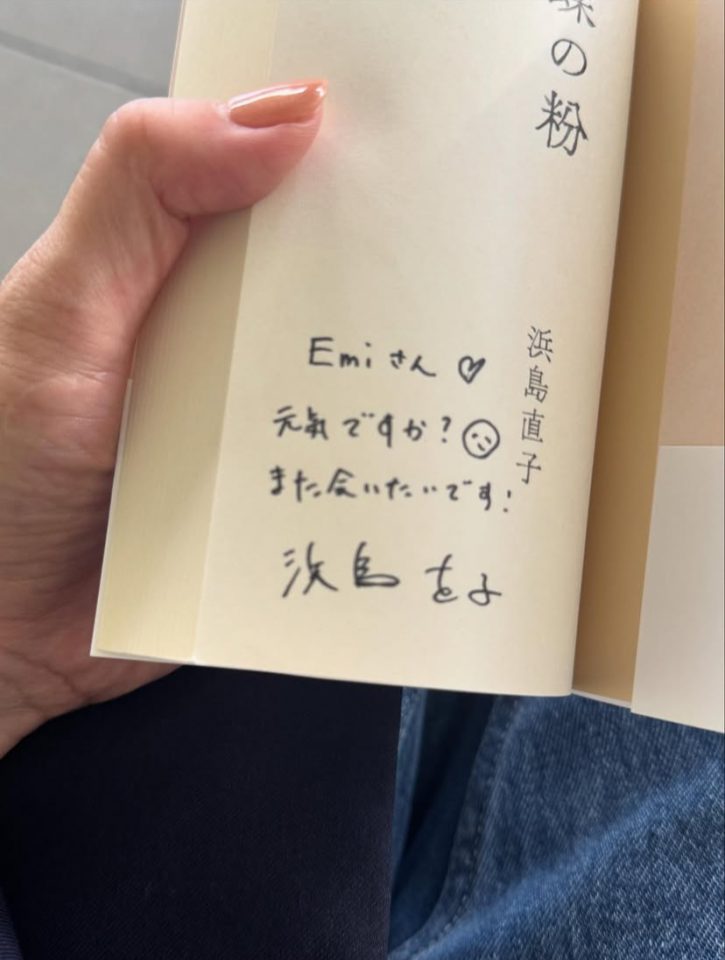 の粉
浜島直子
Emiさん♡
元気ですか?☺
また会いたいです!
浜島直子